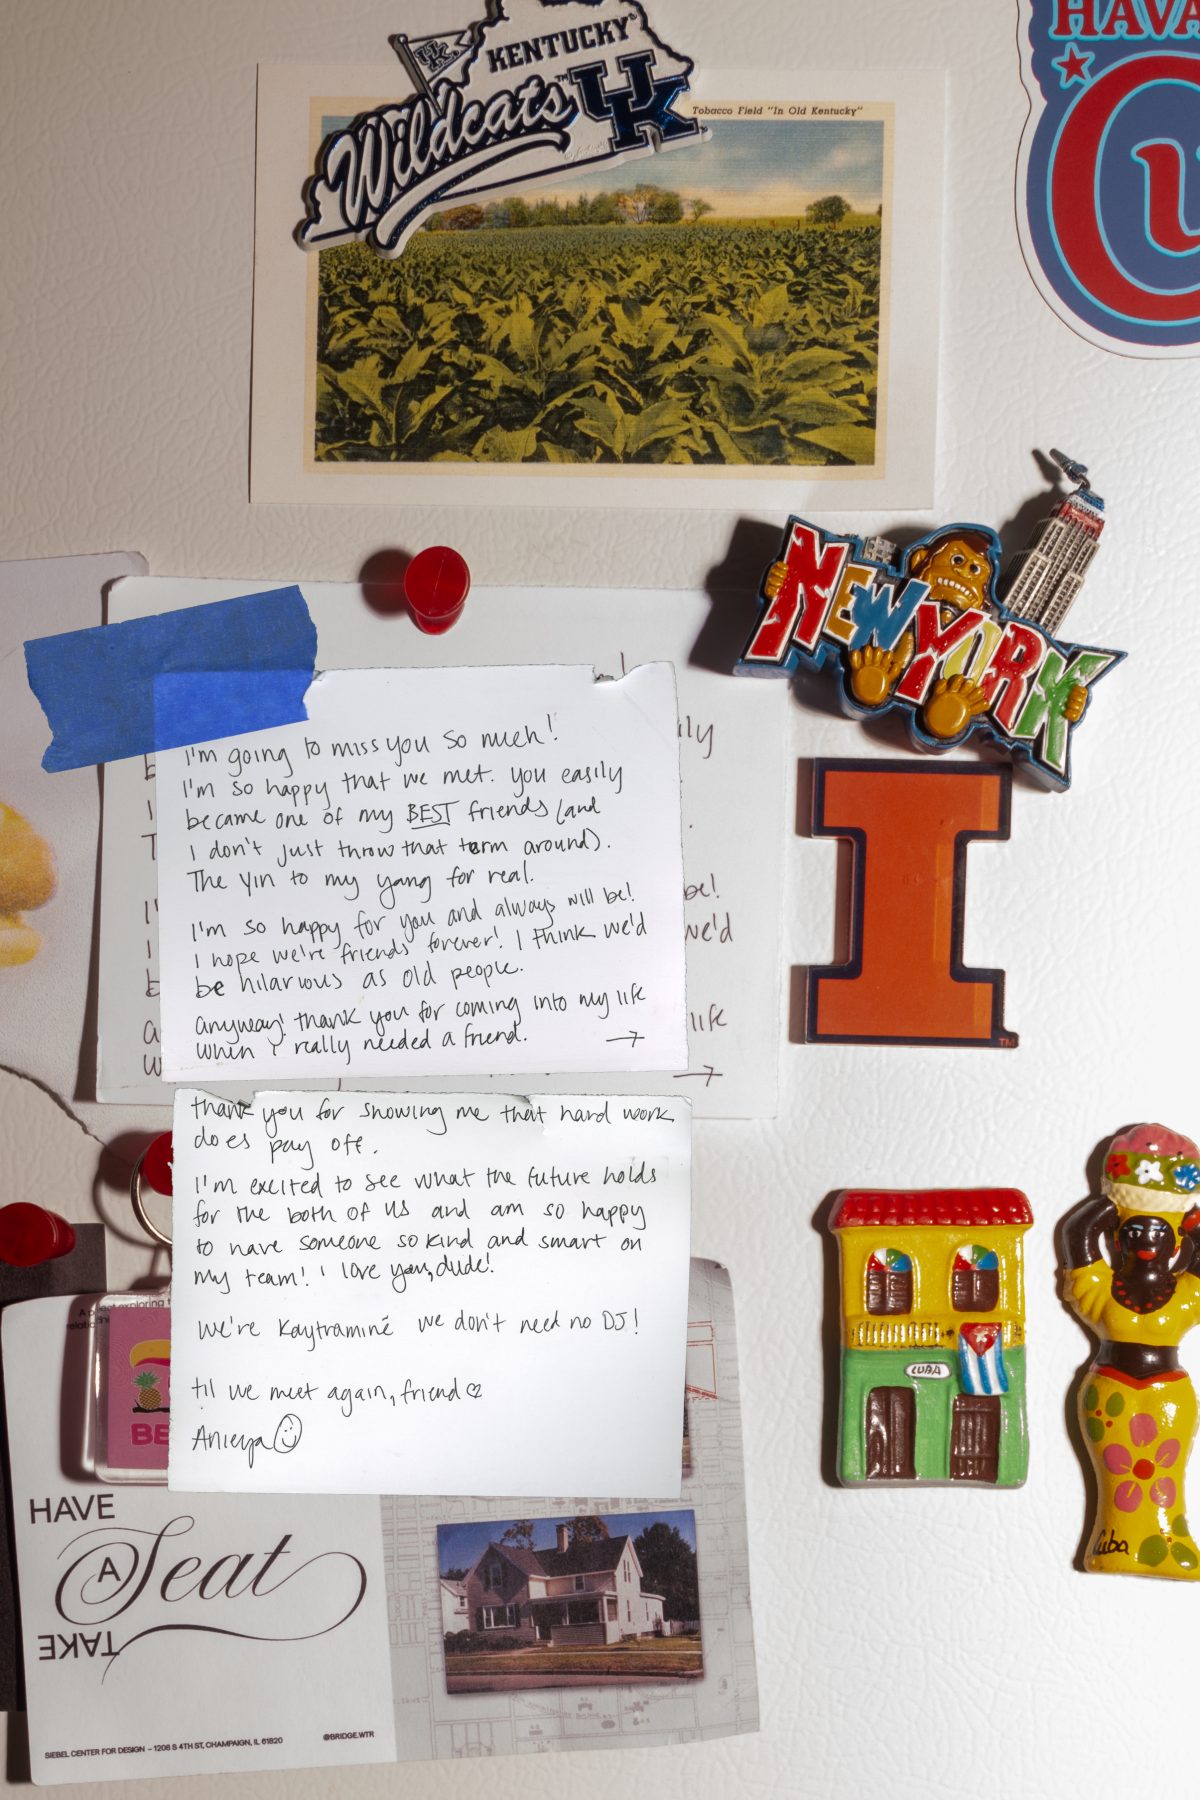 KENTUCKY
UK
Wildcats
UK
Tobacco Field "In Old Kentucky"
HAVA
NEW YORK
I'm going to miss you so much!
I'm so happy that we met. you easily
became one of my BEST friends (and
I don't just throw that term around).
The Yin to my yang for real.
I'm so happy for you and always will be!
I hope we're friends forever! I think we'd
be hilarious as old people.
Anyway! thank you for coming into my life
when i really needed a friend. →
ily
be!
we'd
life
→
I
TM
thank you for showing me that hard work
does pay off.
I'm excited to see what the future holds
for the both of us and am so happy
to have someone so kind and smart on
my team! I love you, dude!
We're Kaytraminé we don't need no DJ!
til we meet again, friend ♡
Anieya ☺
CUBA
Cuba
exploring
BE
HAVE
A Seat
TAKE
SIEBEL CENTER FOR DESIGN – 1208 S 4TH ST, CHAMPAIGN, IL 61820
@BRIDGE.WTR